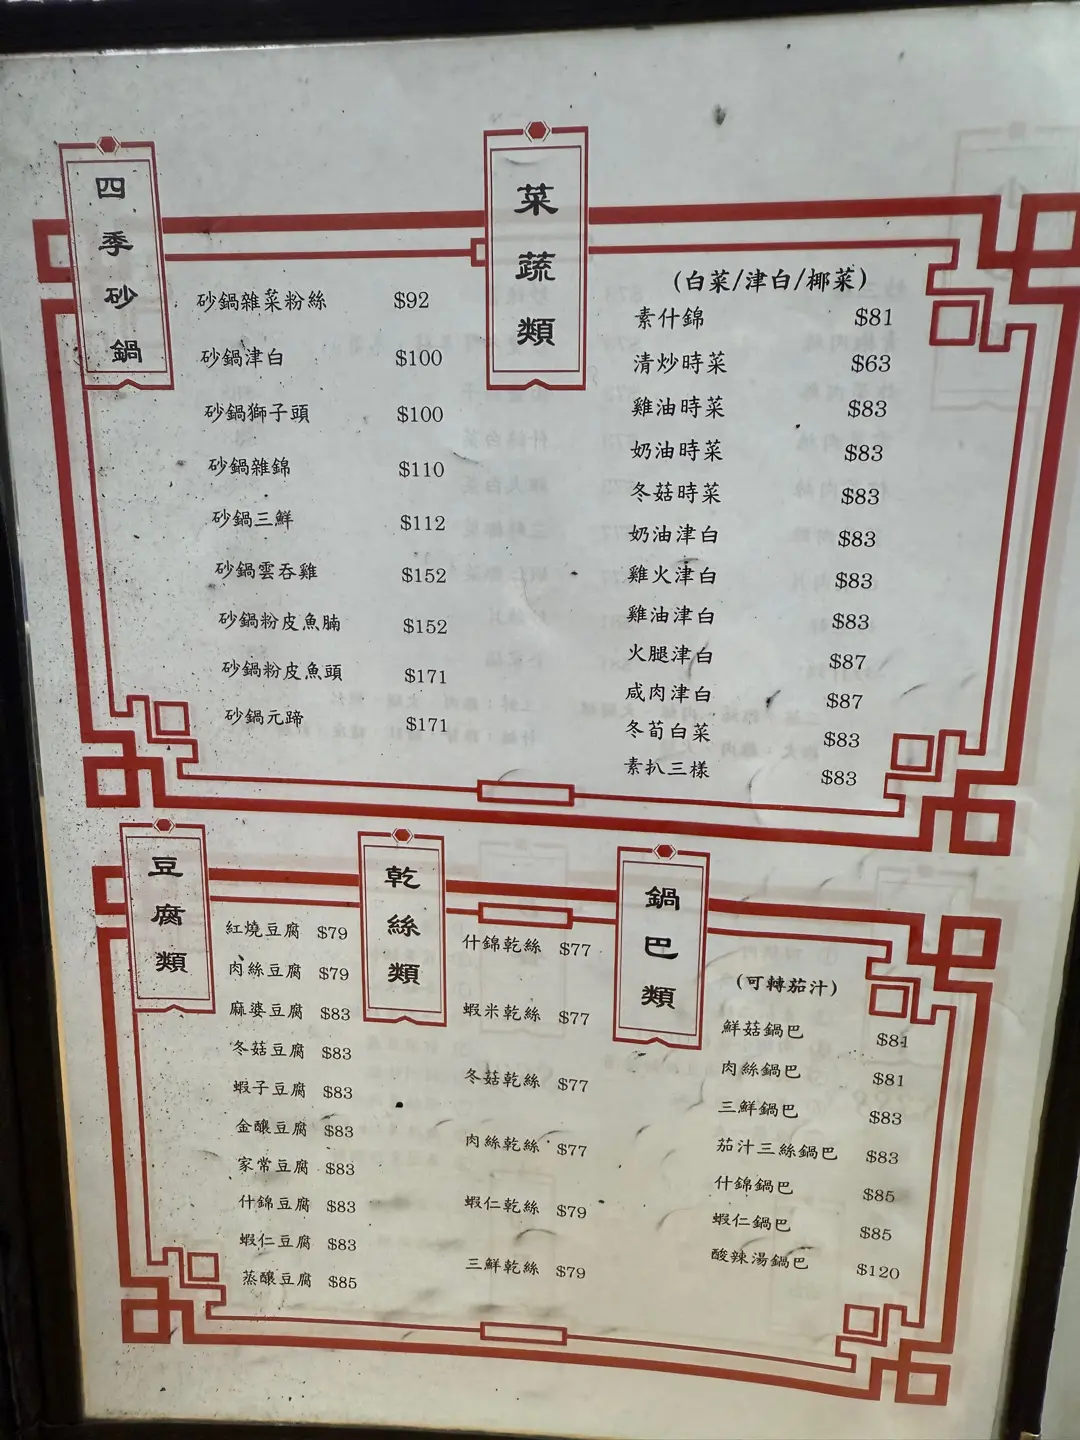 四季砂鍋
砂鍋雜菜粉絲 $92
砂鍋津白 $100
砂鍋獅子頭 $100
砂鍋雜錦 $110
砂鍋三鮮 $112
砂鍋雲吞雞 $152
砂鍋粉皮魚腩 $152
砂鍋粉皮魚頭 $171
砂鍋元蹄 $171
菜蔬類
(白菜/津白/椰菜)
素什錦 $81
清炒時菜 $63
雞油時菜 $83
奶油時菜 $83
冬菇時菜 $83
奶油津白 $83
雞火津白 $83
雞油津白 $83
火腿津白 $87
咸肉津白 $87
冬荀白菜 $83
素扒三樣 $83
豆腐類
紅燒豆腐 $79
肉絲豆腐 $79
麻婆豆腐 $83
冬菇豆腐 $83
蝦子豆腐 $83
金釀豆腐 $83
家常豆腐 $83
什錦豆腐 $83
蝦仁豆腐 $83
蒸釀豆腐 $85
乾絲類
什錦乾絲 $77
蝦米乾絲 $77
冬菇乾絲 $77
肉絲乾絲 $77
蝦仁乾絲 $79
三鮮乾絲 $79
鍋巴類
(可轉茄汁)
鮮菇鍋巴 $81
肉絲鍋巴 $81
三鮮鍋巴 $83
茄汁三絲鍋巴 $83
什錦鍋巴 $85
蝦仁鍋巴 $85
酸辣湯鍋巴 $120